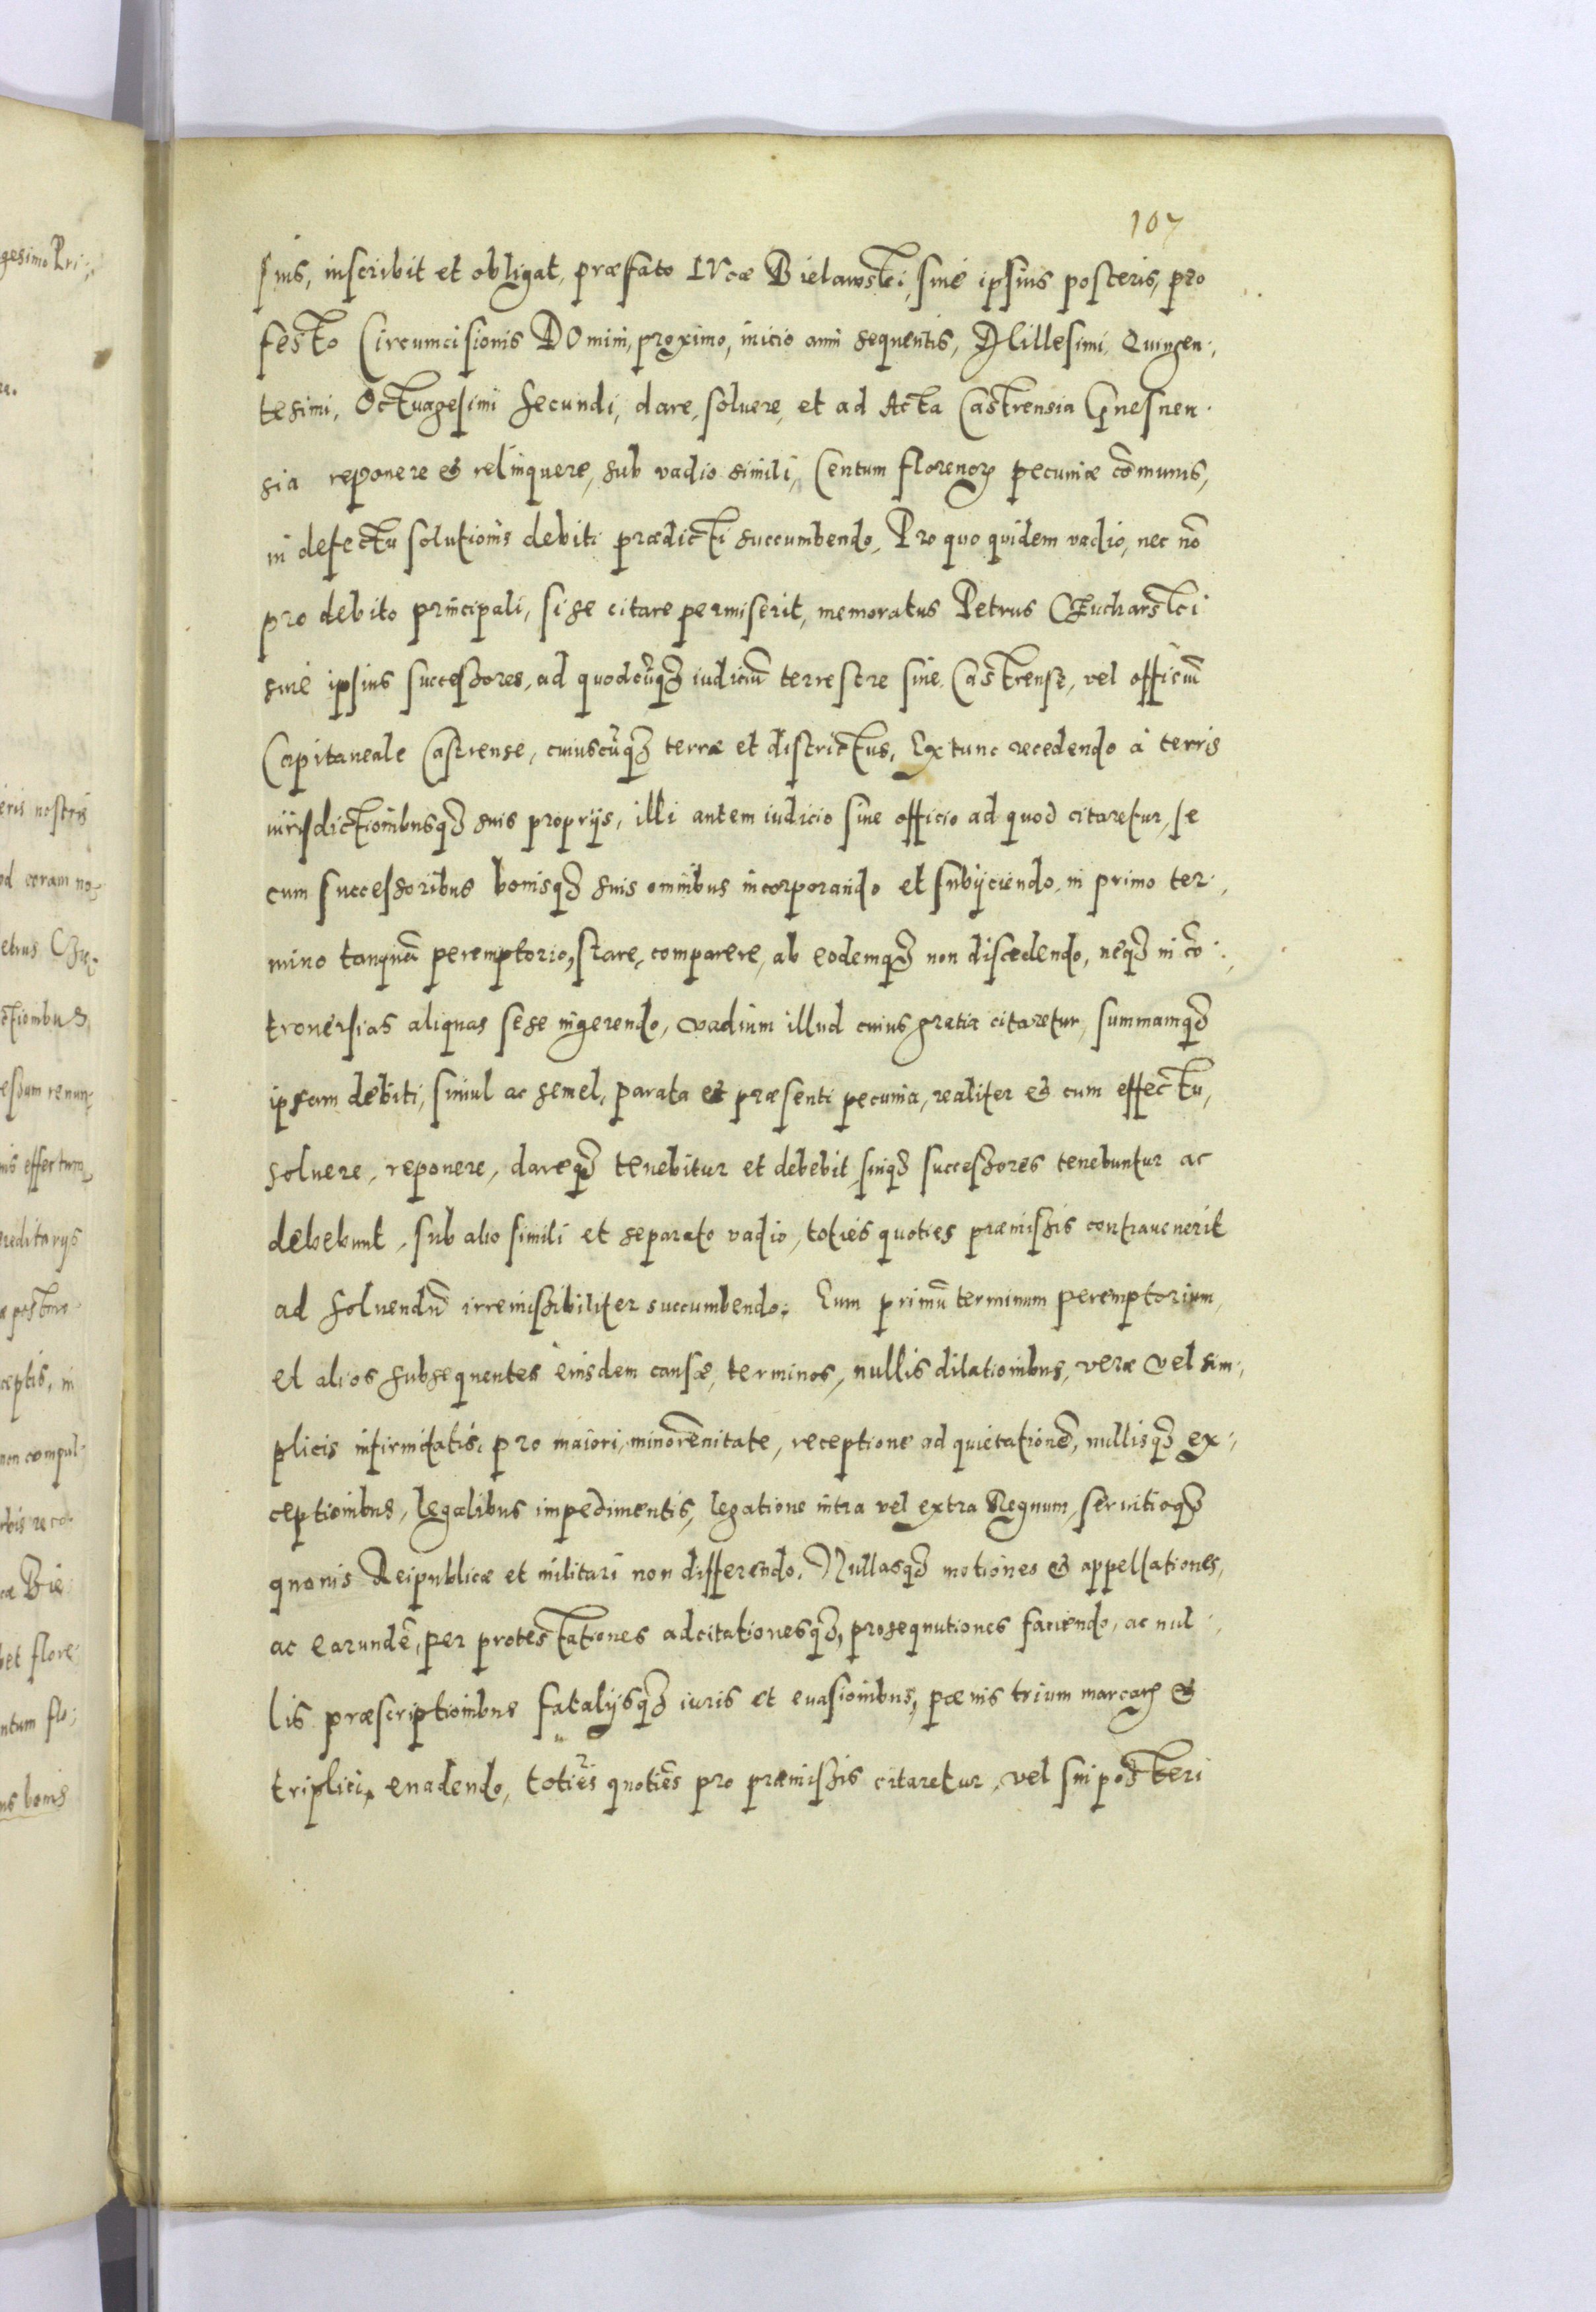 107
suis, inscribit et obligat, præfato LVcæ Bielawski, siue ipsius posteris, pro
festo Circumcisionis DOmini, proximo, inicio anni sequentis, Millesimi, Quingen,
tesimi, Octuagesimi secundi, dare, soluere, et ad Acta Castrensia Gnesnen
sia reponere et relinquere, sub vadio simili, Centum florenoꝝ pecuniæ cōmunis,
in defectu solutionis debiti prædicti succumbendo, Pro quo quidem vadio, nec nō
pro debito principali, si se citare permiserit, memoratus Petrus CZucharski
siue ipsius successores, ad quodcūqꝫ iudiciū terrestre siue Castrense, vel officiū
Capitaneale Castrense, cuiuscūqꝫ terræ et districtus, Ex tunc recedendo à terris
iurisdictionibusqꝫ suis proprijs, illi autem iudicio siue officio ad quod citaretur, se
cum successoribus bonisqꝫ suis omnibus incorporando et subijciendo, in primo ter,
mino tanquā peremptorio, stare, comparere, ab eodemqꝫ non discedendo, neqꝫ in cō,
trouersias aliquas sese ingerendo, vadium illud cuius gratia citaretur, summamqꝫ
ipsam debiti, simul ac semel, parata et præsenti pecunia, realiter et cum effectu,
soluere, reponere, dareqꝫ tenebitur et debebit, suiqꝫ successores tenebuntur ac
debebunt, sub alio simili et separato vadio, toties quoties præmissis contrauenerit
ad soluendū irremissibiliter succumbendo. Eum primū terminum peremptorium,
et alios subsequentes eiusdem causæ, terminos, nullis dilationibus, veræ vel sim,
plicis infirmitatis, pro maiori, minorēnitate, receptione ad quietationē, nullisqꝫ ex,
ceptionibus, legalibus impedimentis, legatione intra vel extra Regnum, seruitioqꝫ
quouis Reipublicæ et militari non differendo, Nullasqꝫ motiones et appellationes,
ac earundē, per protestationes adcitationesqꝫ, prosequutiones faciendo, ac nul,
lis præscriptionibus fatalijsqꝫ iuris et euasionibus, pœnis trium marcaꝝ et
triplici, euadendo, toties quoties pro præmissis citaretur, vel sui posteri
gesimo Pri,
eris nostris
od coram no,
etrus CZu,
ctionibus,
essam renun,
nis effectum,
reditarijs
ceptis, in
non compul,
cæ Bie
et flore,
ntum flo,
ns bonis